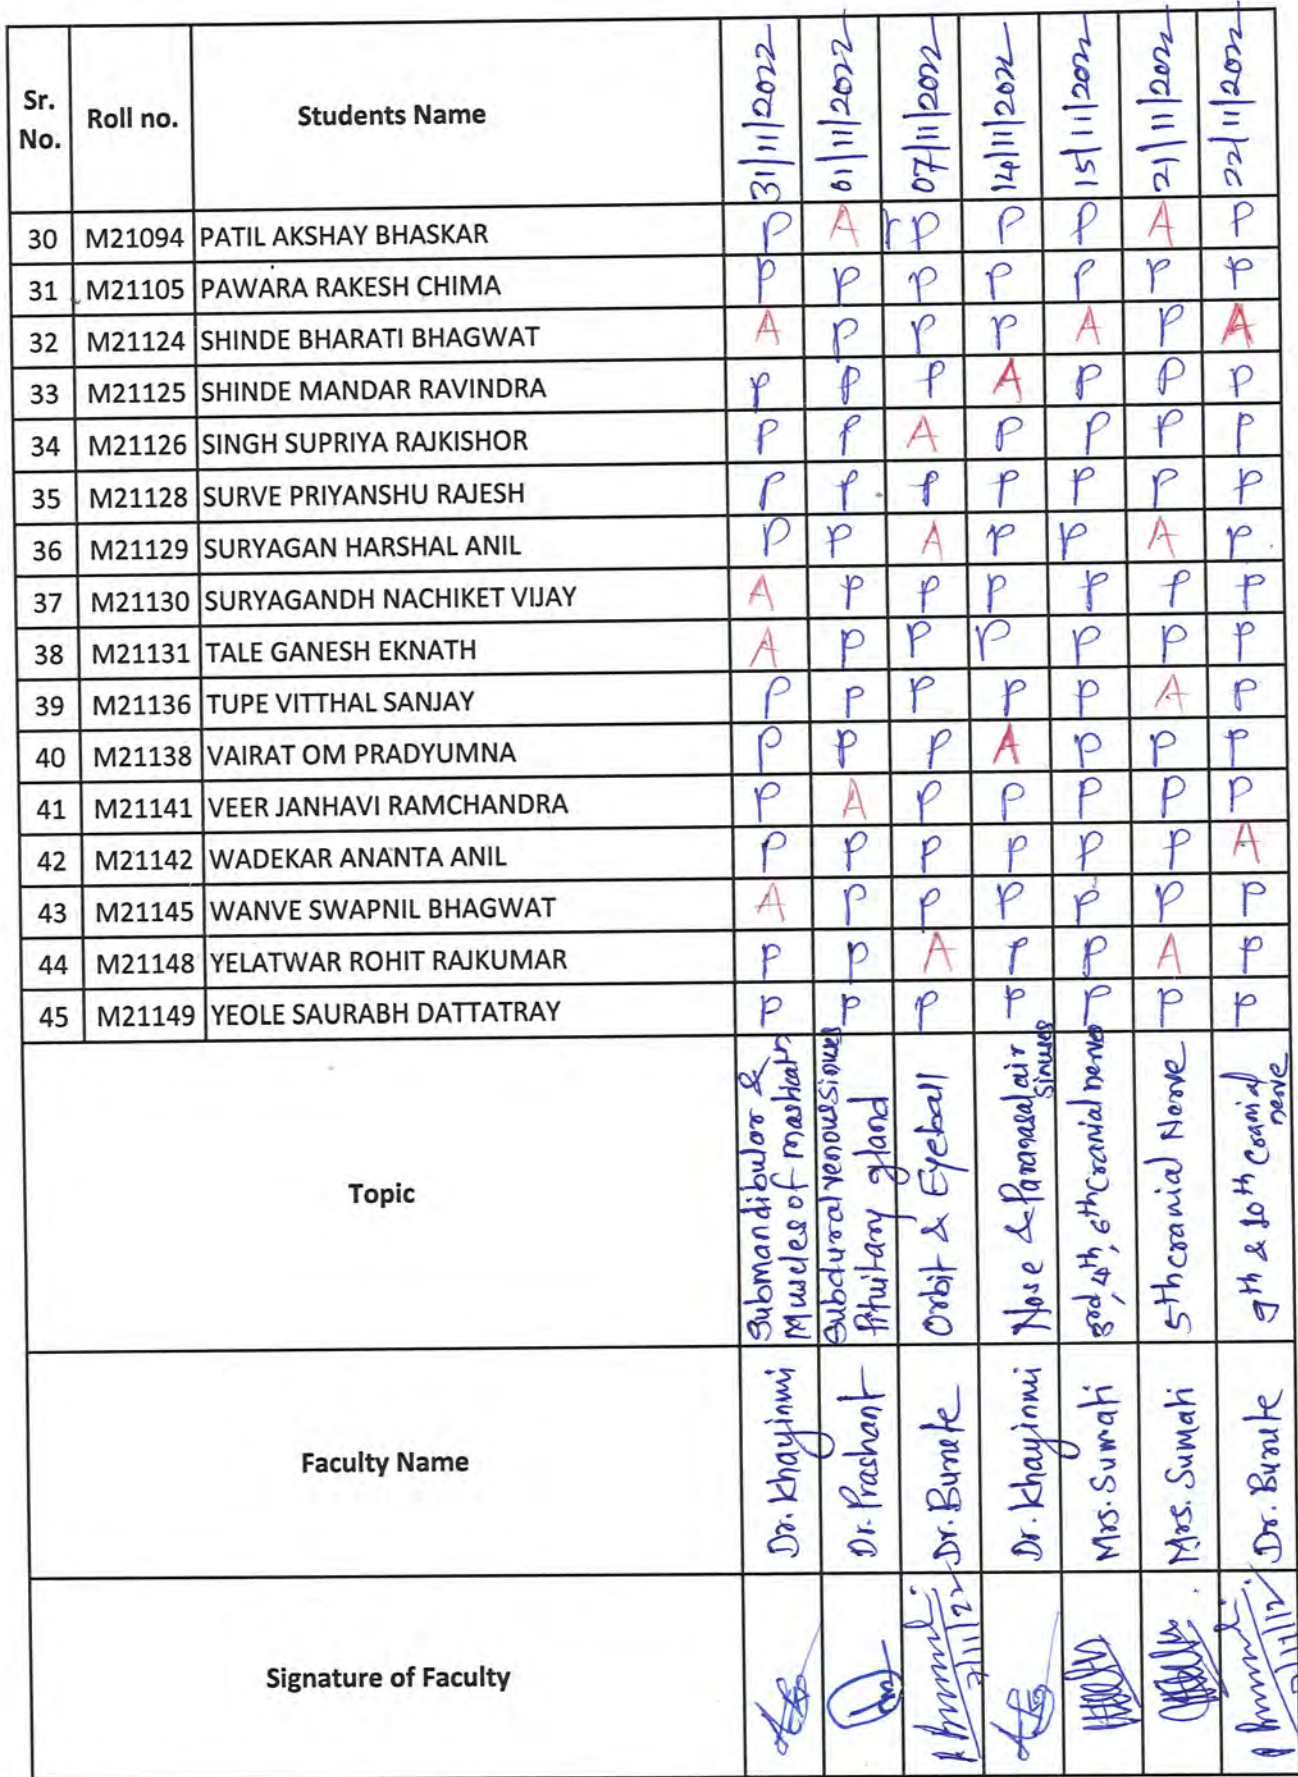 Sr. No. Roll no. Students Name 31/11/2022 01/11/2022 07/11/2022 14/11/2022 15/11/2022 21/11/2022 22/11/2022
30 M21094 PATIL AKSHAY BHASKAR P A P P P A P
31 M21105 PAWARA RAKESH CHIMA P P P P P P P
32 M21124 SHINDE BHARATI BHAGWAT A P P P A P A
33 M21125 SHINDE MANDAR RAVINDRA P P P A P P P
34 M21126 SINGH SUPRIYA RAJKISHOR P P A P P P P
35 M21128 SURVE PRIYANSHU RAJESH P P P P P P P
36 M21129 SURYAGAN HARSHAL ANIL P P A P P A P
37 M21130 SURYAGANDH NACHIKET VIJAY A P P P P P P
38 M21131 TALE GANESH EKNATH A P P P P P P
39 M21136 TUPE VITTHAL SANJAY P P P P P A P
40 M21138 VAIRAT OM PRADYUMNA P P P A P P P
41 M21141 VEER JANHAVI RAMCHANDRA P A P P P P P
42 M21142 WADEKAR ANANTA ANIL P P P P P P A
43 M21145 WANVE SWAPNIL BHAGWAT A P P P P P P
44 M21148 YELATWAR ROHIT RAJKUMAR P P A P P A P
45 M21149 YEOLE SAURABH DATTATRAY P P P P P P P
Topic
Submandibular &
Muscles of
Subdural venous sinuses
Pituitary gland
Orbit & Eyeball
Nose & Paranasal air
sinuses
3rd, 4th, 6th cranial nerve
5th cranial Nerve
9th & 10th cranial
nerve
Faculty Name
Dr. Khayinmi
Dr. Prashant
Dr. Burute
Dr. Khayinmi
Mrs. Sumati
Mrs. Sumati
Dr. Burute
Signature of Faculty